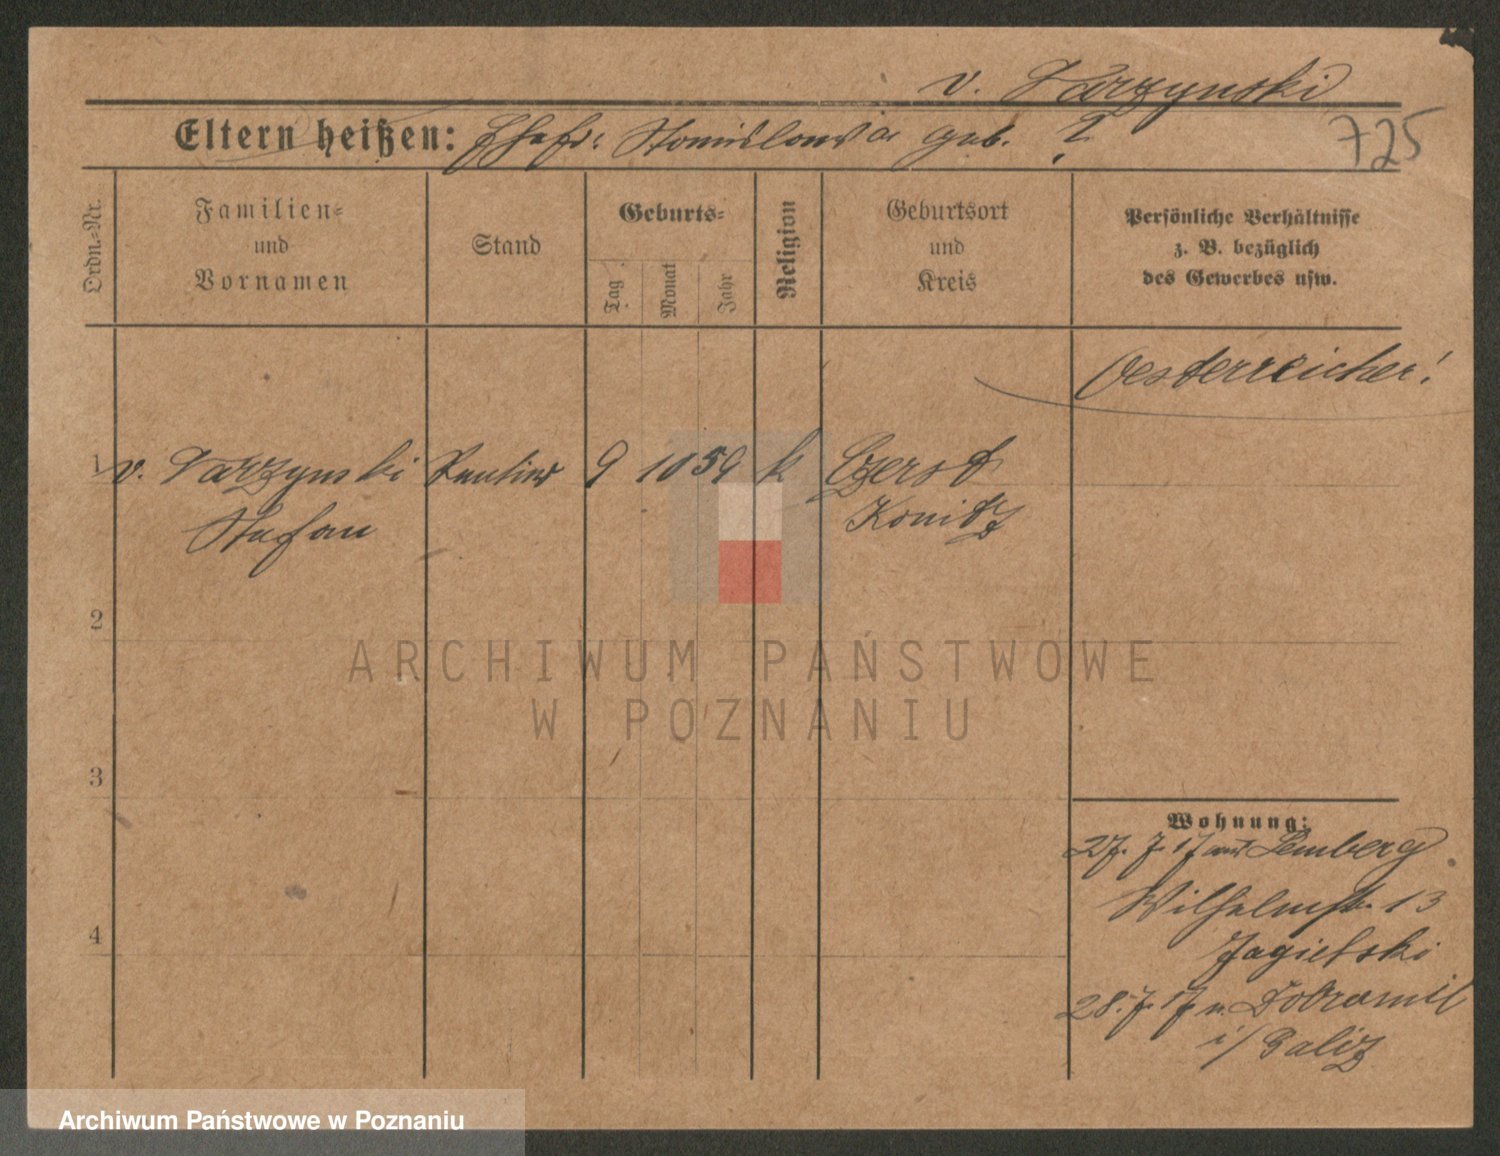 v. Tarzynski
Eltern heißen: Ehefr: Stanislawa geb. ?
725
Ordn.-Nr.
Familien-
und
Vornamen
Stand
Geburts-
Tag
Monat
Jahr
Religion
Geburtsort
und
Kreis
Persönliche Verhältnisse
z. B. bezüglich
des Gewerbes usw.
Oesterreicher!
1 v. Tarzynski Rentier 9 10 59 k Czersk
Stefan Konitz
2
ARCHIWUM PAŃSTWOWE
W POZNANIU
3
Wohnung:
27. 7. 17 aus Lemberg
Wilhelmstr. 13
Jagielski
4
28. 7. 17 n. Dobromil
i/ Galiz
Archiwum Państwowe w Poznaniu